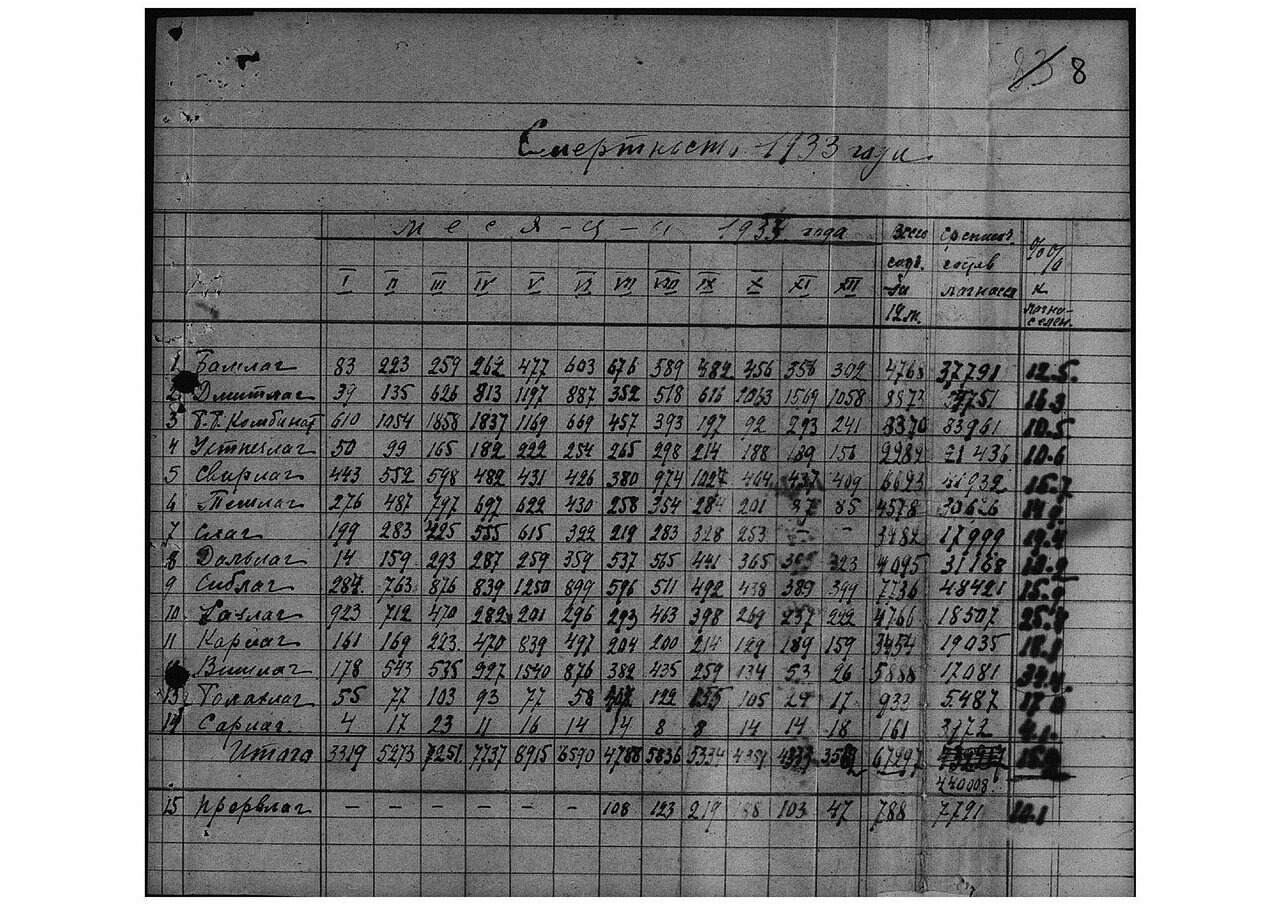 83 8
Смертность 1933 года
М е с я - ц - ы 1933 года Всего
за
12 м. среднем. состав лагнасел %% к лагнаселен.
I II III IV V VI VII VIII IX X XI XII
1 Бамлаг 83 223 259 262 477 603 676 589 482 456 351 302 4763 37791 12.5
2 Дмитлаг 39 135 626 813 1197 887 352 518 616 1063 1569 1058 8873 16.3
3 Б.Б. Комбинат 610 1054 1858 1837 1169 669 457 393 197 92 293 241 8370 83961 10.5
4 Ухтпечлаг 50 99 165 182 222 254 265 298 214 188 189 156 21436 10.6
5 Свирлаг 443 552 598 482 431 426 380 974 1027 464 437 409 6693 15.7
6 Темлаг 276 487 797 697 622 430 258 354 284 201 87 85 4578 30626
7 Слаг 199 283 425 555 615 322 219 283 328 253 - - 3482 17999 19.4
8 Дальлаг 14 159 293 287 259 359 537 565 441 365 323 4095 31168
9 Сиблаг 284 763 876 839 1250 899 596 511 492 438 389 399 7736 48421
10 923 712 470 282 201 296 293 463 398 269 237 222 4766 18507 25.8
11 Карлаг 161 169 223 470 839 497 204 200 214 129 189 159 3454 19035 18.1
12 Вишлаг 178 543 535 927 1540 876 382 435 259 134 53 26 5888 17081
13 55 77 103 93 77 58 122 155 105 29 17 933 5487
14 Сарлаг 4 17 23 11 16 14 14 8 8 14 14 18 161 3972 4.1
Итого 3319 5273 7251 7737 8915 6590 4788 5836 5334 4351 67297
440008
15 Прорвлаг - - - - - - 108 123 219 103 47 788 7791 10.1